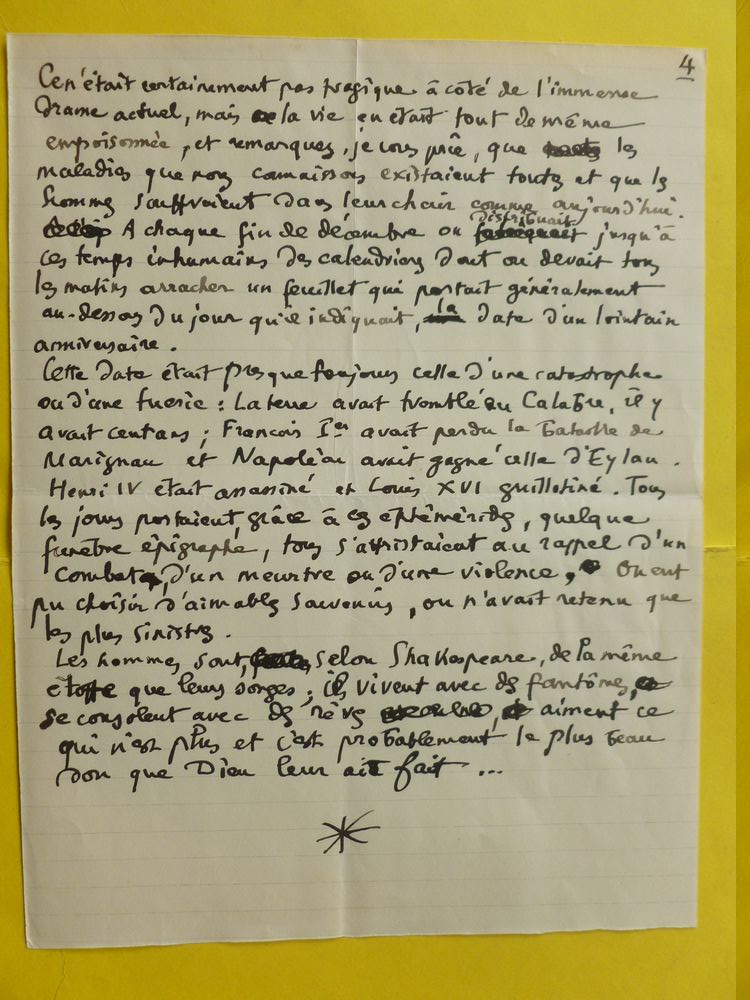 4
Ce n'était certainement pas tragique à côté de l'immense
drame actuel, mais la vie en était tout de même
empoisonnée, et remarquez, je vous prie, que les
maladies que nous connaissons existaient toutes et que les
hommes souffraient dans leur chair comme aujourd'hui.
A chaque fin de décembre on distribuait jusqu'à
ces temps inhumains des calendriers dont on devait tous
les matins arracher un feuillet qui portait généralement
au-dessous du jour qu'il indiquait, la date d'un lointain
anniversaire.
Cette date était presque toujours celle d'une catastrophe
ou d'une tuerie : La terre avait tremblé en Calabre, il y
avait cent ans ; François Ier avait perdu la bataille de
Marignan et Napoléon avait gagné celle d'Eylau.
Henri IV était assassiné et Louis XVI guillotiné. Tous
les jours portaient, grâce à ces éphémérides, quelque
funèbre épigraphe, tous s'attristaient au rappel d'un
combat, d'un meurtre ou d'une violence, On eut
pu choisir d'aimables souvenirs, on n'avait retenu que
les plus sinistres.
Les hommes sont, selon Shakespeare, de la même
étoffe que leurs songes ; ils vivent avec des fantômes,
se consolent avec des rêves aiment ce
qui n'est plus et c'est probablement le plus beau
don que Dieu leur ait fait ...